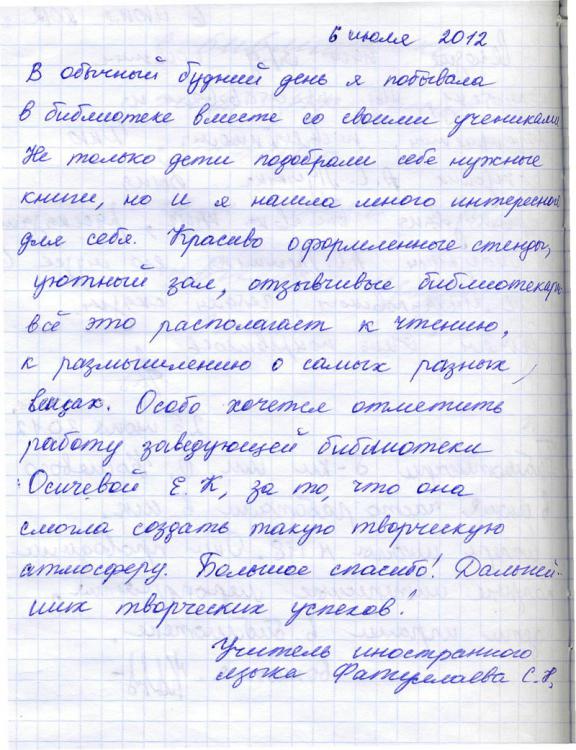 6 июля 2012
В обычный будний день я побывала
в библиотеке вместе со своими учениками
Не только дети подобрали себе нужные
книги, но и я нашла много интересного
для себя. Красиво оформленные стенды,
уютный зал, отзывчивые библиотекари
всё это располагает к чтению,
к размышлению о самых разных
вещах. Особо хочется отметить
работу заведующей библиотеки
Осичевой Е. К, за то, что она
смогла создать такую творческую
атмосферу. Большое спасибо! Дальней-
ших творческих успехов!
Учитель иностранного
языка С.Н.